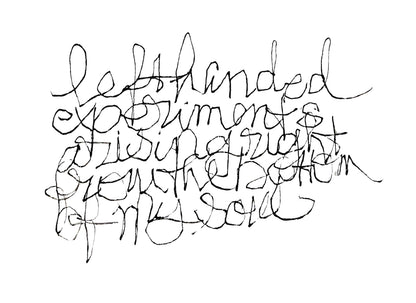 left handed
experiments
arising right
from the bottom
of my soul